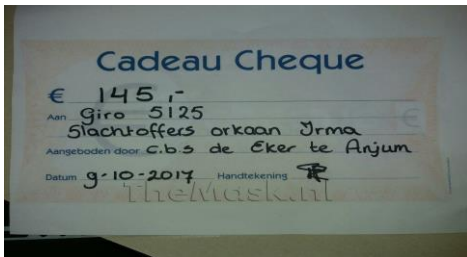 Cadeau Cheque
€ 145,-
Aan Giro 5125
Slachtoffers orkaan Irma
Aangeboden door C.b.s de Eker te Anjum
Datum 9-10-2017 Handtekening
TheMask.nl